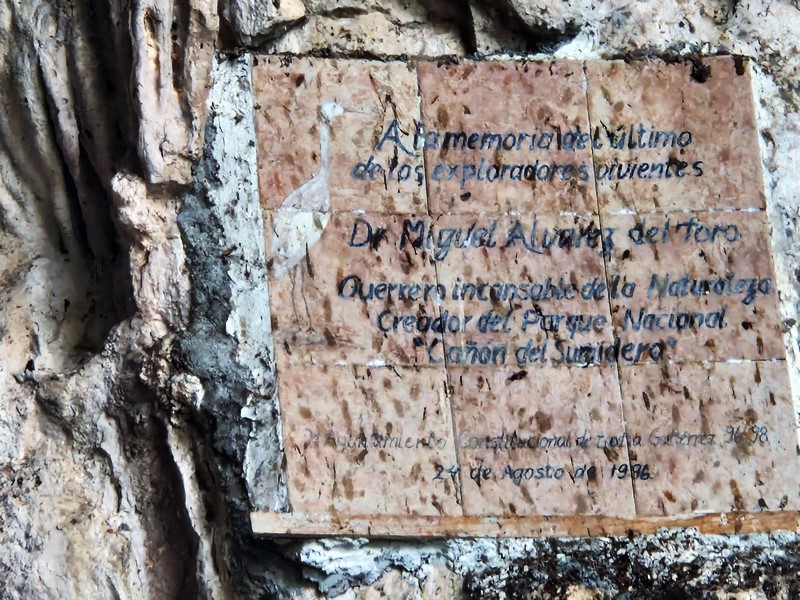 A la memoria del último
de los exploradores vivientes
Dr Miguel Alvarez del Toro
Guerrero incansable de la Naturaleza
Creador del Parque Nacional
"Cañón del Sumidero"
H Ayuntamiento Constitucional de Gutiérrez 96.98
24 de Agosto de 1996.